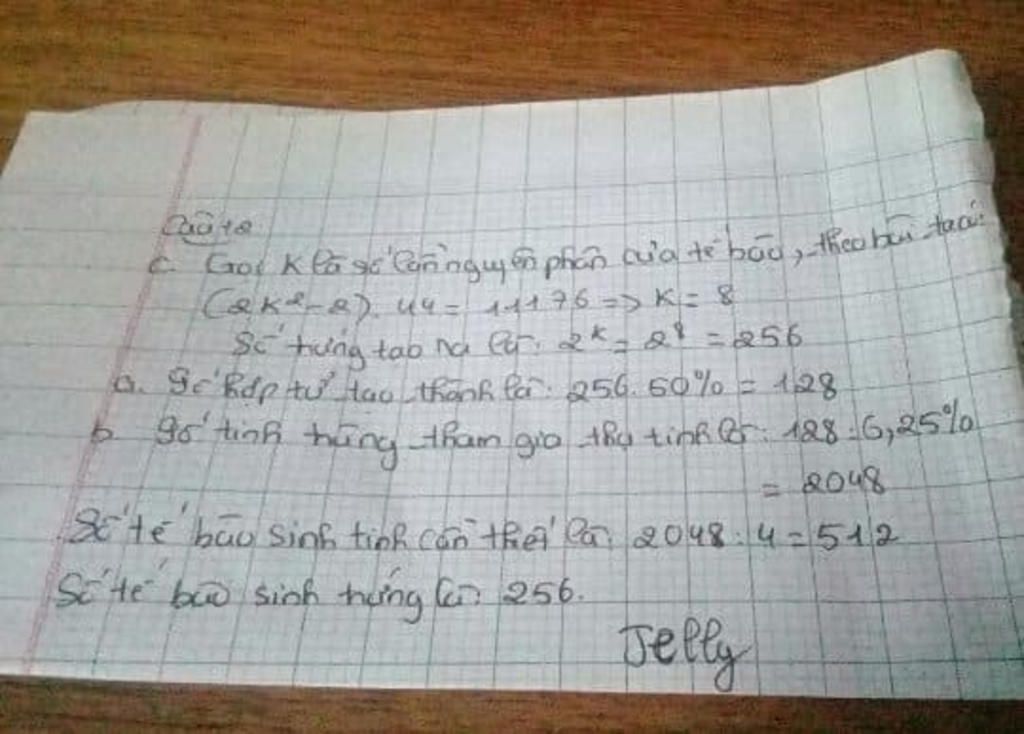 Câu 12
c. Gọi K là số lần nguyên phân của tế bào, theo bài ta có:
(2K²-2). 44 = 11176 => K = 8
Số trứng tạo ra là: 2ᵏ = 2⁸ = 256
a. Số hợp tử tạo thành là: 256.50% = 128
b Số tinh trùng tham gia thụ tinh là: 128:6,25%
= 2048
Số tế bào sinh tinh cần thiết là: 2048:4=512
Số tế bào sinh trứng là: 256.
Jelly